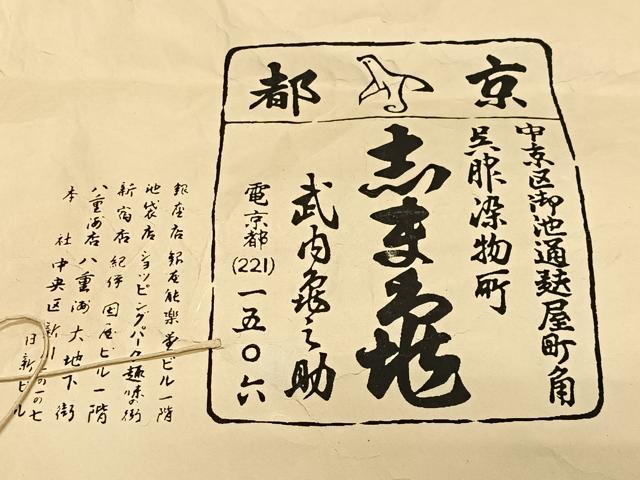 京都
中京区御池通麸屋町角
呉服染物所
志ま亀
武内亀之助
電京都(221)一五〇六
銀座店 銀座能楽堂ビル一階
池袋店 ショッピングパーク趣味の街
新宿店 紀伊国屋ビル一階
八重洲店 八重洲大地下街
本社 中央区新川
日新ビル